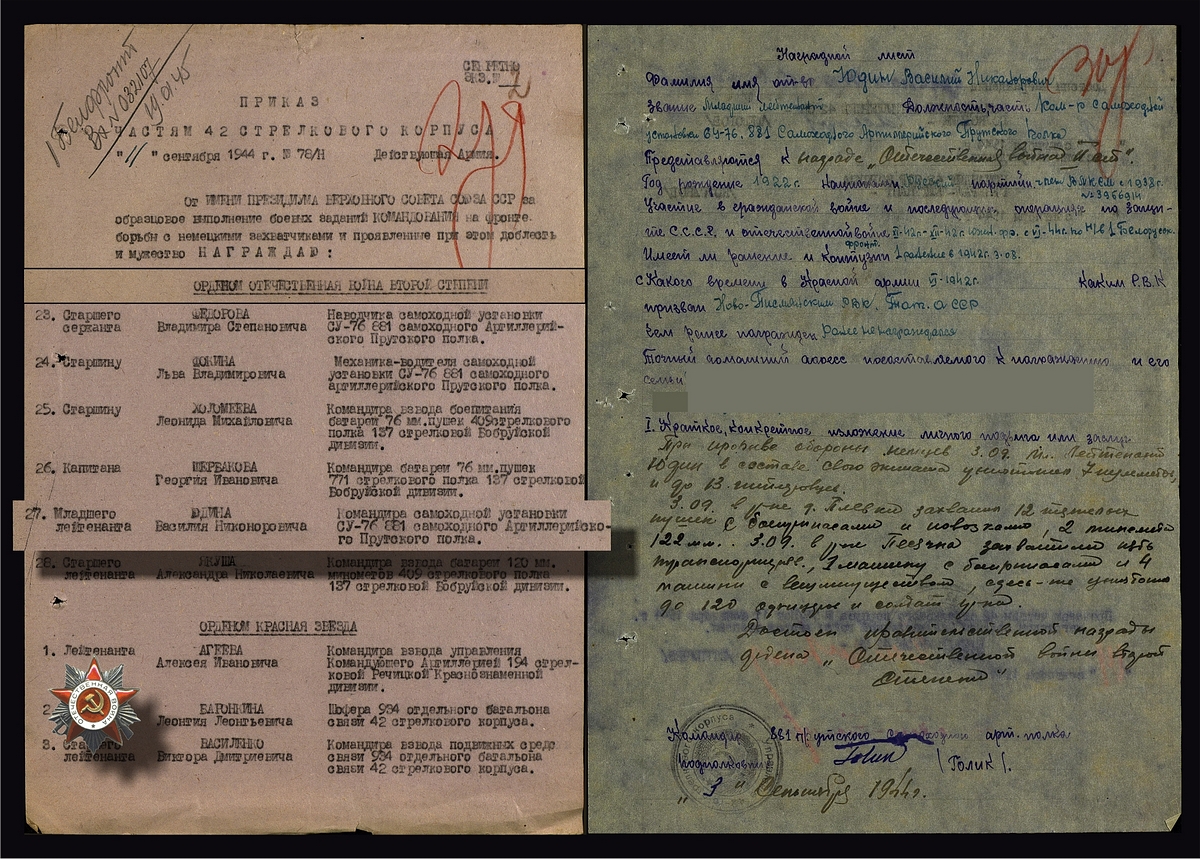 1 Белфронт
Вх № 032107
19.01.45
СЕКРЕТНО
ЭКЗ. № 2
ПРИКАЗ
ЧАСТЯМ 42 СТРЕЛКОВОГО КОРПУСА
"11" сентября 1944 г. № 78/Н Действующая Армия.
От ИМЕНИ ПРЕЗИДИУМА ВЕРХОВНОГО СОВЕТА СОЮЗА ССР за
образцовое выполнение боевых заданий КОМАНДОВАНИЯ на фронте
борьбы с немецкими захватчиками и проявленные при этом доблесть
и мужество НАГРАЖДАЮ:
ОРДЕНОМ ОТЕЧЕСТВЕННАЯ ВОЙНА ВТОРОЙ СТЕПЕНИ
23. Старшего сержанта ФЕДОРОВА Владимира Степановича Наводчика самоходной установки
СУ-76 881 самоходного Артиллерий-
ского Прутского полка.
24. Старшину ФОКИНА Льва Владимировича Механика-водителя самоходной
установки СУ-76 881 самоходного
артиллерийского Прутского полка.
25. Старшину ХОЛОМЕЕВА Леонида Михайловича Командира взвода боепитания
батареи 76 мм.пушек 409стрелкового
полка 137 стрелковой Бобруйской
дивизии.
26. Капитана ЩЕРБАКОВА Георгия Ивановича Командира батареи 76 мм.пушек
771 стрелкового полка 137 стрелковой
Бобруйской дивизии.
27. Младшего лейтенанта ЮДИНА Василия Никоноровича Командира самоходной установки
СУ-76 881 самоходного Артиллерийско-
го Прутского полка.
28. Старшего лейтенанта ЯКУША Александра Николаевича Командира взвода батареи 120 мм.
минометов 409 стрелкового полка
137 стрелковой Бобруйской дивизии.
ОРДЕНОМ КРАСНАЯ ЗВЕЗДА
1. Лейтенанта АГЕЕВА Алексея Ивановича Командира взвода управления
Командующего Артиллерией 194 стрел-
ковой Речицкой Краснознаменной
дивизии.
2. БАРОНКИНА Леонтия Леонтьевича Шофера 984 отдельного батальона
связи 42 стрелкового корпуса.
3. Старшего лейтенанта ВАСИЛЕНКО Виктора Дмитриевича Командира взвода подвижных средс
связи 984 отдельного батальона
связи 42 стрелкового корпуса.
ОТЕЧЕСТВЕННАЯ ВОЙНА
Наградной лист
Фамилия имя отч-во Юдин Василий Никанорович
Звание Младший лейтенант Должность, часть Ком-р Самоходной
установки СУ-76, 881 Самоходного Артиллерийского Прутского полка
Представляется к награде „Отечественная война II ст".
Год рождение 1922 г. Национальн. партийн. член ВЛКСМ с 1938г.
№ 3966914
Участие в гражданской войне и последующих операциях по защи-
те С.С.С.Р. и отечественной войне
Имеет ли ранение и контузии 1 ранение в 1942г. 3.08.
с Какого времени в Красной армии VI-1942г. Каким Р.В.К
призван Ново-Письмянским РВК. Тат. АССР.
Чем ранее награжден Ранее не награждался
Точный домашний адрес представляемого к награждению и его
семьи
I. Краткое, конкретное изложение личного подвига или заслуг
При прорыве обороны немцев 3.09. Мл. лейтенант
Юдин в составе своего экипажа уничтожил 7 пулеметов,
и до 13 гитлеровцев.
3.09. в р-не д. Плевки захватил 12 тяжелых
пушек с боеприпасами и повозками, 2 миномета
122 мм. 3.09. в р-не Песечна захватили пять
транспортеров, 1 машину с боеприпасами и 4
машины с вещимуществом, здесь-же уничтожил
до 120 солдат
Достоин правительственной награды
ордена „Отечественной войны второй
степени"
Командир 881 Прутского самоходного арт. полка
Подполковник Голик /Голик/.
„3" Сентября 1944г.